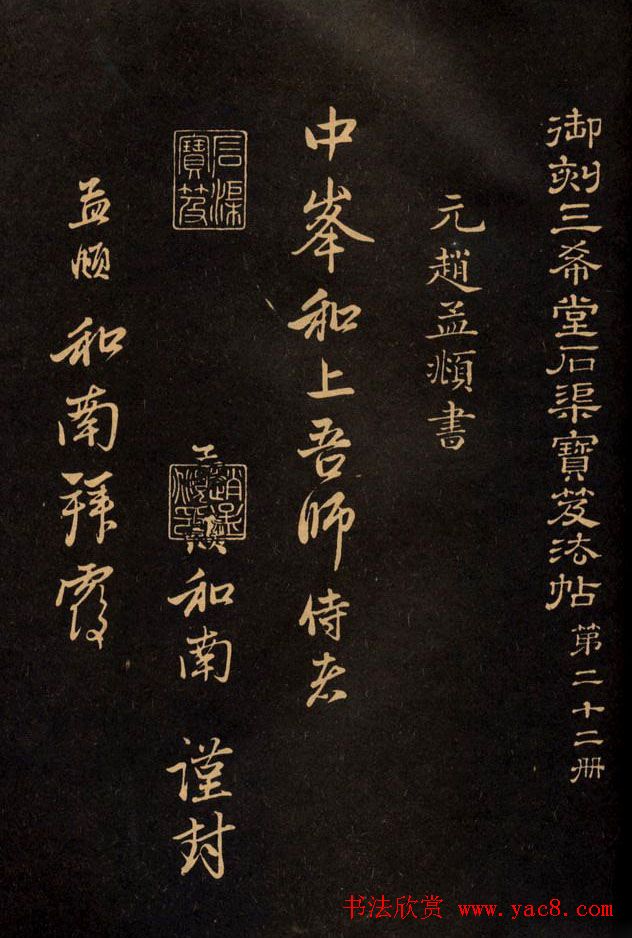 御刻三希堂石渠寶笈法帖 第二十二册
元趙孟頫書
中峯和上吾師侍者
石渠寶笈
和南 謹封
孟頫和南拜覆
书法欣赏 www.yac8.com